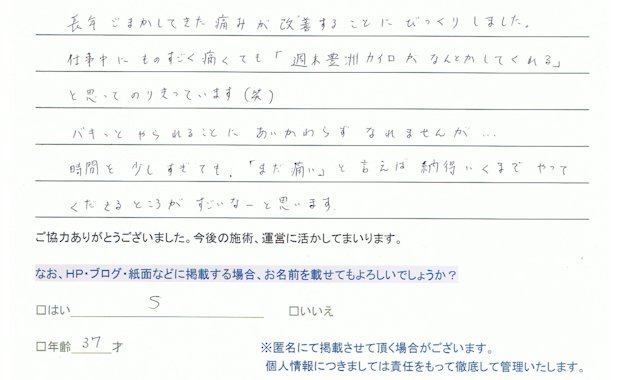 長年 ごまかしてきた 痛みが 改善する ことに びっくり しました。
仕事中に ものすごく 痛くても「週末豊洲カイロが なんとかしてくれる」
と思って のりきっています(笑)
バキっと やられることに あいかわらず なれませんが…
時間を 少し すぎても、「まだ痛い」と 言えば 納得いくまで やって
くださる ところが すごいなーと思います.
ご協力ありがとうございました。今後の施術、運営に活かしてまいります。
なお、HP・ブログ・紙面などに掲載する場合、お名前を載せてもよろしいでしょうか?
□はい S □いいえ
□年齢 37 才 ※匿名にて掲載させて頂く場合がございます。
個人情報につきましては責任をもって徹底して管理いたします。